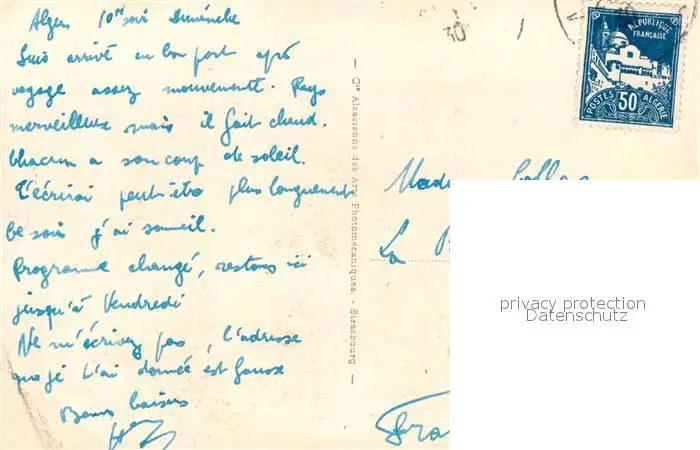 Alger 10h soir Dimanche
Suis arrivé en bon port après
voyage assez mouvementé. Pays
merveilleux mais il fait chaud.
Chacun a son coup de soleil.
T'écrirai peut être plus longuement
Ce soir j'ai sommeil.
Programme changé, restons ici
jusqu'à Vendredi
Ne m'écrivez pas, l'adresse
que je t'ai donnée est fausse
Bons baisers
Cie Alsacienne des Arts Photomécaniques. - Strasbourg
30
RÉPUBLIQUE
FRANÇAISE
POSTES 50 ALGÉRIE
La
privacy protection
Datenschutz